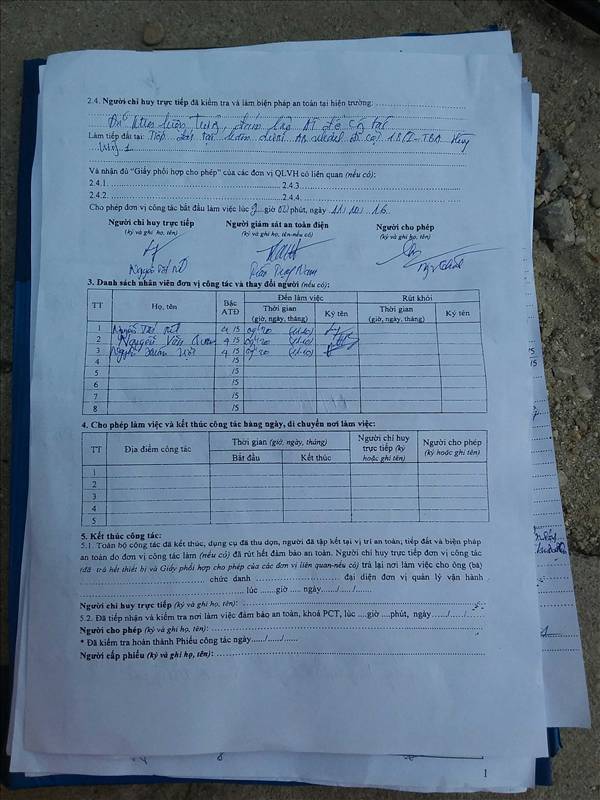 2.4. Người chỉ huy trực tiếp đã kiểm tra và làm biện pháp an toàn tại hiện trường:
Làm tiếp đất tại: Tiếp đất tại
1
Và nhận đủ "Giấy phối hợp cho phép" của các đơn vị QLVH có liên quan (nếu có):
2.4.1. 2.4.3.
2.4.2. 2.4.4.
Cho phép đơn vị công tác bắt đầu làm việc lúc giờ phút, ngày 11/10/ 16
Người chỉ huy trực tiếp Người giám sát an toàn điện Người cho phép
(ký và ghi họ, tên) (ký và ghi họ, tên-nếu có) (ký và ghi họ, tên)
Nguyễn
3. Danh sách nhân viên đơn vị công tác và thay đổi người (nếu có):
TT Họ, tên Bậc ATĐ Đến làm việc Rút khỏi
Thời gian (giờ, ngày, tháng) Ký tên Thời gian (giờ, ngày, tháng) Ký tên
1 Nguyễn 4/5 (11.10)
2 Nguyễn Văn 4/5 (11.10)
3 Nguyễn Xuân 4/5 (11.10)
4 /5
5 /5
6 /5
7 /5
8 /5
4. Cho phép làm việc và kết thúc công tác hàng ngày, di chuyển nơi làm việc:
TT Địa điểm công tác Thời gian (giờ, ngày, tháng) Người chỉ huy trực tiếp (ký hoặc ghi tên) Người cho phép (ký hoặc ghi tên)
Bắt đầu Kết thúc
1
2
3
4
5
5. Kết thúc công tác:
5.1. Toàn bộ công tác đã kết thúc, dụng cụ đã thu dọn, người đã tập kết tại vị trí an toàn; tiếp đất và biện pháp
an toàn do đơn vị công tác làm (nếu có) đã rút hết đảm bảo an toàn. Người chỉ huy trực tiếp đơn vị công tác
(đã trả hết thiết bị và Giấy phối hợp cho phép của các đơn vị liên quan-nếu có) trả lại nơi làm việc cho ông (bà)
chức danh đại diện đơn vị quản lý vận hành
lúc ....giờ .... ngày....../....../......
Người chỉ huy trực tiếp (ký và ghi họ, tên):
5.2. Đã tiếp nhận và kiểm tra nơi làm việc đảm bảo an toàn, khoá PCT, lúc ....giờ ....phút, ngày....../....../......
Người cho phép (ký và ghi họ, tên):
* Đã kiểm tra hoàn thành Phiếu công tác ngày....../....../......
Người cấp phiếu (ký và ghi họ, tên):
1